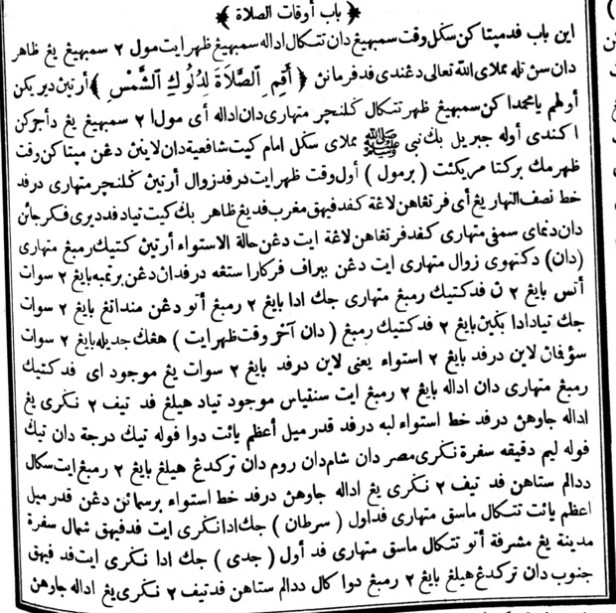 ﴿ باب أوقات الصلاة ﴾
اين باب فد مپتاكن سكل وقت سمبهيغ دان تتكال اداله سمبهيغ ظهر ايت مول ٢ سمبهيغ يغ ظاهر
دان سن تله مملاي الله تعالى دغندي فد فرمانن ﴿ أَقِمِ الصَّلَاةَ لِدُلُوكِ الشَّمْسِ ﴾ ارتين ديريكن
أولهم يا محمد اكن سمبهيغ ظهر تتكال كلنچر متهاري دان اداله اي مول ٢ سمبهيغ يغ داجركن
اكندي أوله جبريل بݢ نبي ﷺ مملاي سكل امام كيت شافعية دان لاينن دغن مپتاكن وقت
ظهر مك بركتا مريكئت ( برمول ) أول وقت ظهر ايت درفد زوال أرتين كلنچر متهاري درفد
خط نصف النهار يغ أي فرتغاهن لاغة كفد فيهق مغرب فد يغ ظاهر بݢ كيت تياد فد ديري فكرجائن
دان دنماي سمفي متهاري كفد فرتغاهن لاغة ايت دغن حالة الاستواء أرتين كتيك رمبغ متهاري
(دان) دكتهوي زوال متهاري ايت دغن ببراف فركارا ستغه درفدان دغن برتمبه بايغ ٢ سوات
أتس بايغ ٢ ن فد كتيك رمبغ متهاري جك ادا بايغ ٢ رمبغ أتو دغن منداتغ بايغ ٢ سوات
جك تياد ادا بݢين بايغ ٢ فد كتيك رمبغ ( دان آخر وقت ظهر ايت ) هڠݢ جديله بايغ ٢ سوات
سؤفمان لاين درفد بايغ ٢ استواء يعني لاين درفد بايغ ٢ سوات يغ موجود اى فد كتيك
رمبغ متهاري دان اداله بايغ ٢ رمبغ ايت سنتياس موجود تياد هيلغ فد تيف ٢ نكري يغ
اداله جاوهن درفد خط استواء لبه درفد قدر ميل أعظم يائت دوا فوله تيݢ درجة دان تيݢ
فوله ليم دقيقه سفرة نكري مصر دان شام دان روم دان تركدغ هيلغ بايغ ٢ رمبغ ايت سكال
ددالم ستاهن فد تيف ٢ نكري يغ اداله جاوهن درفد خط استواء برسمائن دغن قدر ميل
اعظم يائت تتكال ماسق متهاري فد اول ( سرطان ) جك ادا نكري ايت فد فيهق شمال سفرة
مدينة يغ مشرفة أتو تتكال ماسق متهاري فد أول ( جدي ) جك ادا نكري ايت فد فيهق
جنوب دان تركدغ هيلغ بايغ ٢ رمبغ دوا كال ددالم ستاهن فد تيف ٢ نكري يغ اداله جاوهن